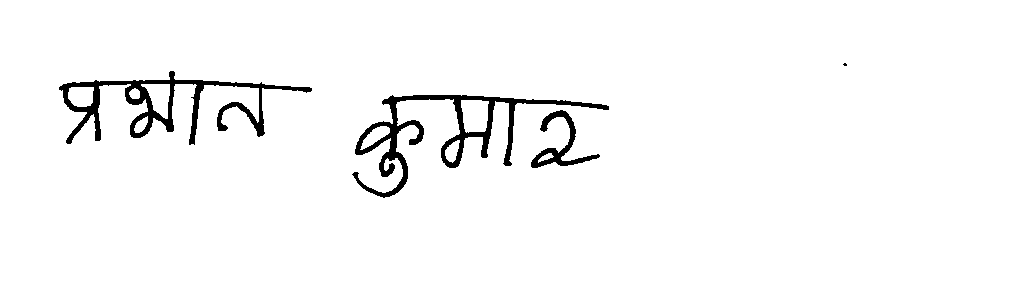 प्रभात कुमार